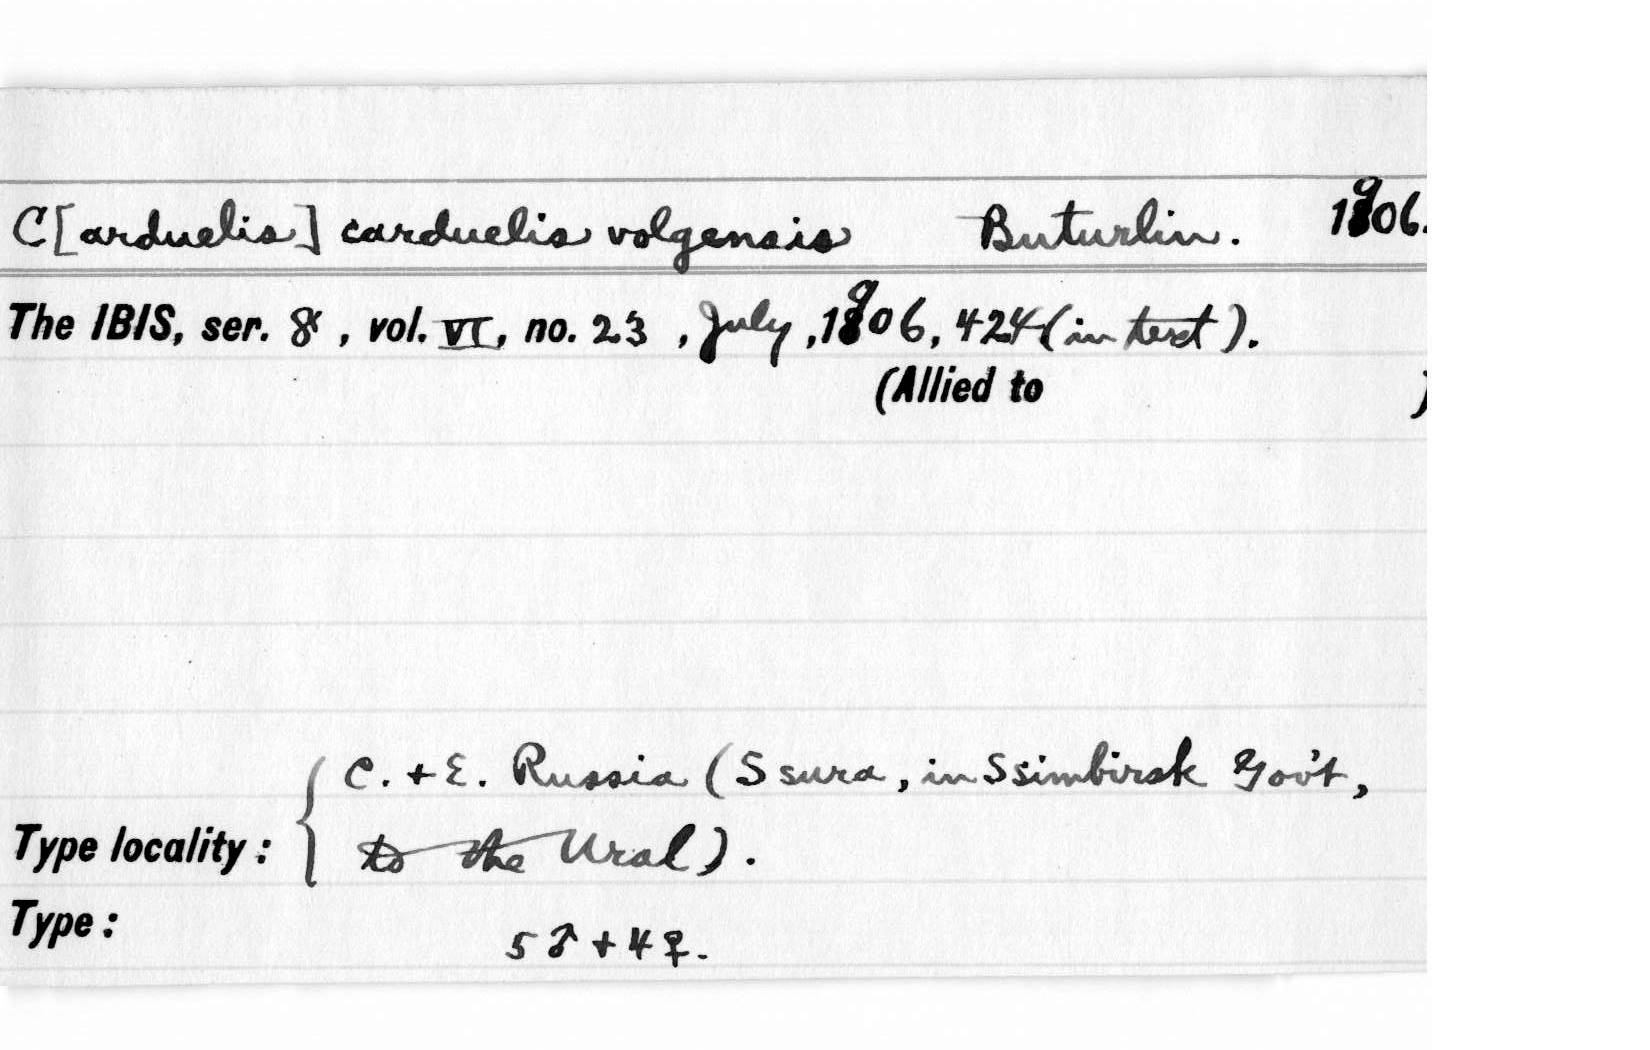 C[arduelis] carduelis volgensis Buturlin. 1906.
The IBIS, ser. 8, vol. VI, no. 23, July, 1906, 424 (in text).
(Allied to )
C. + E. Russia (Ssura, in Ssimbirsk Gov't,
Type locality: to the Ural).
Type:
5♂ + 4♀.